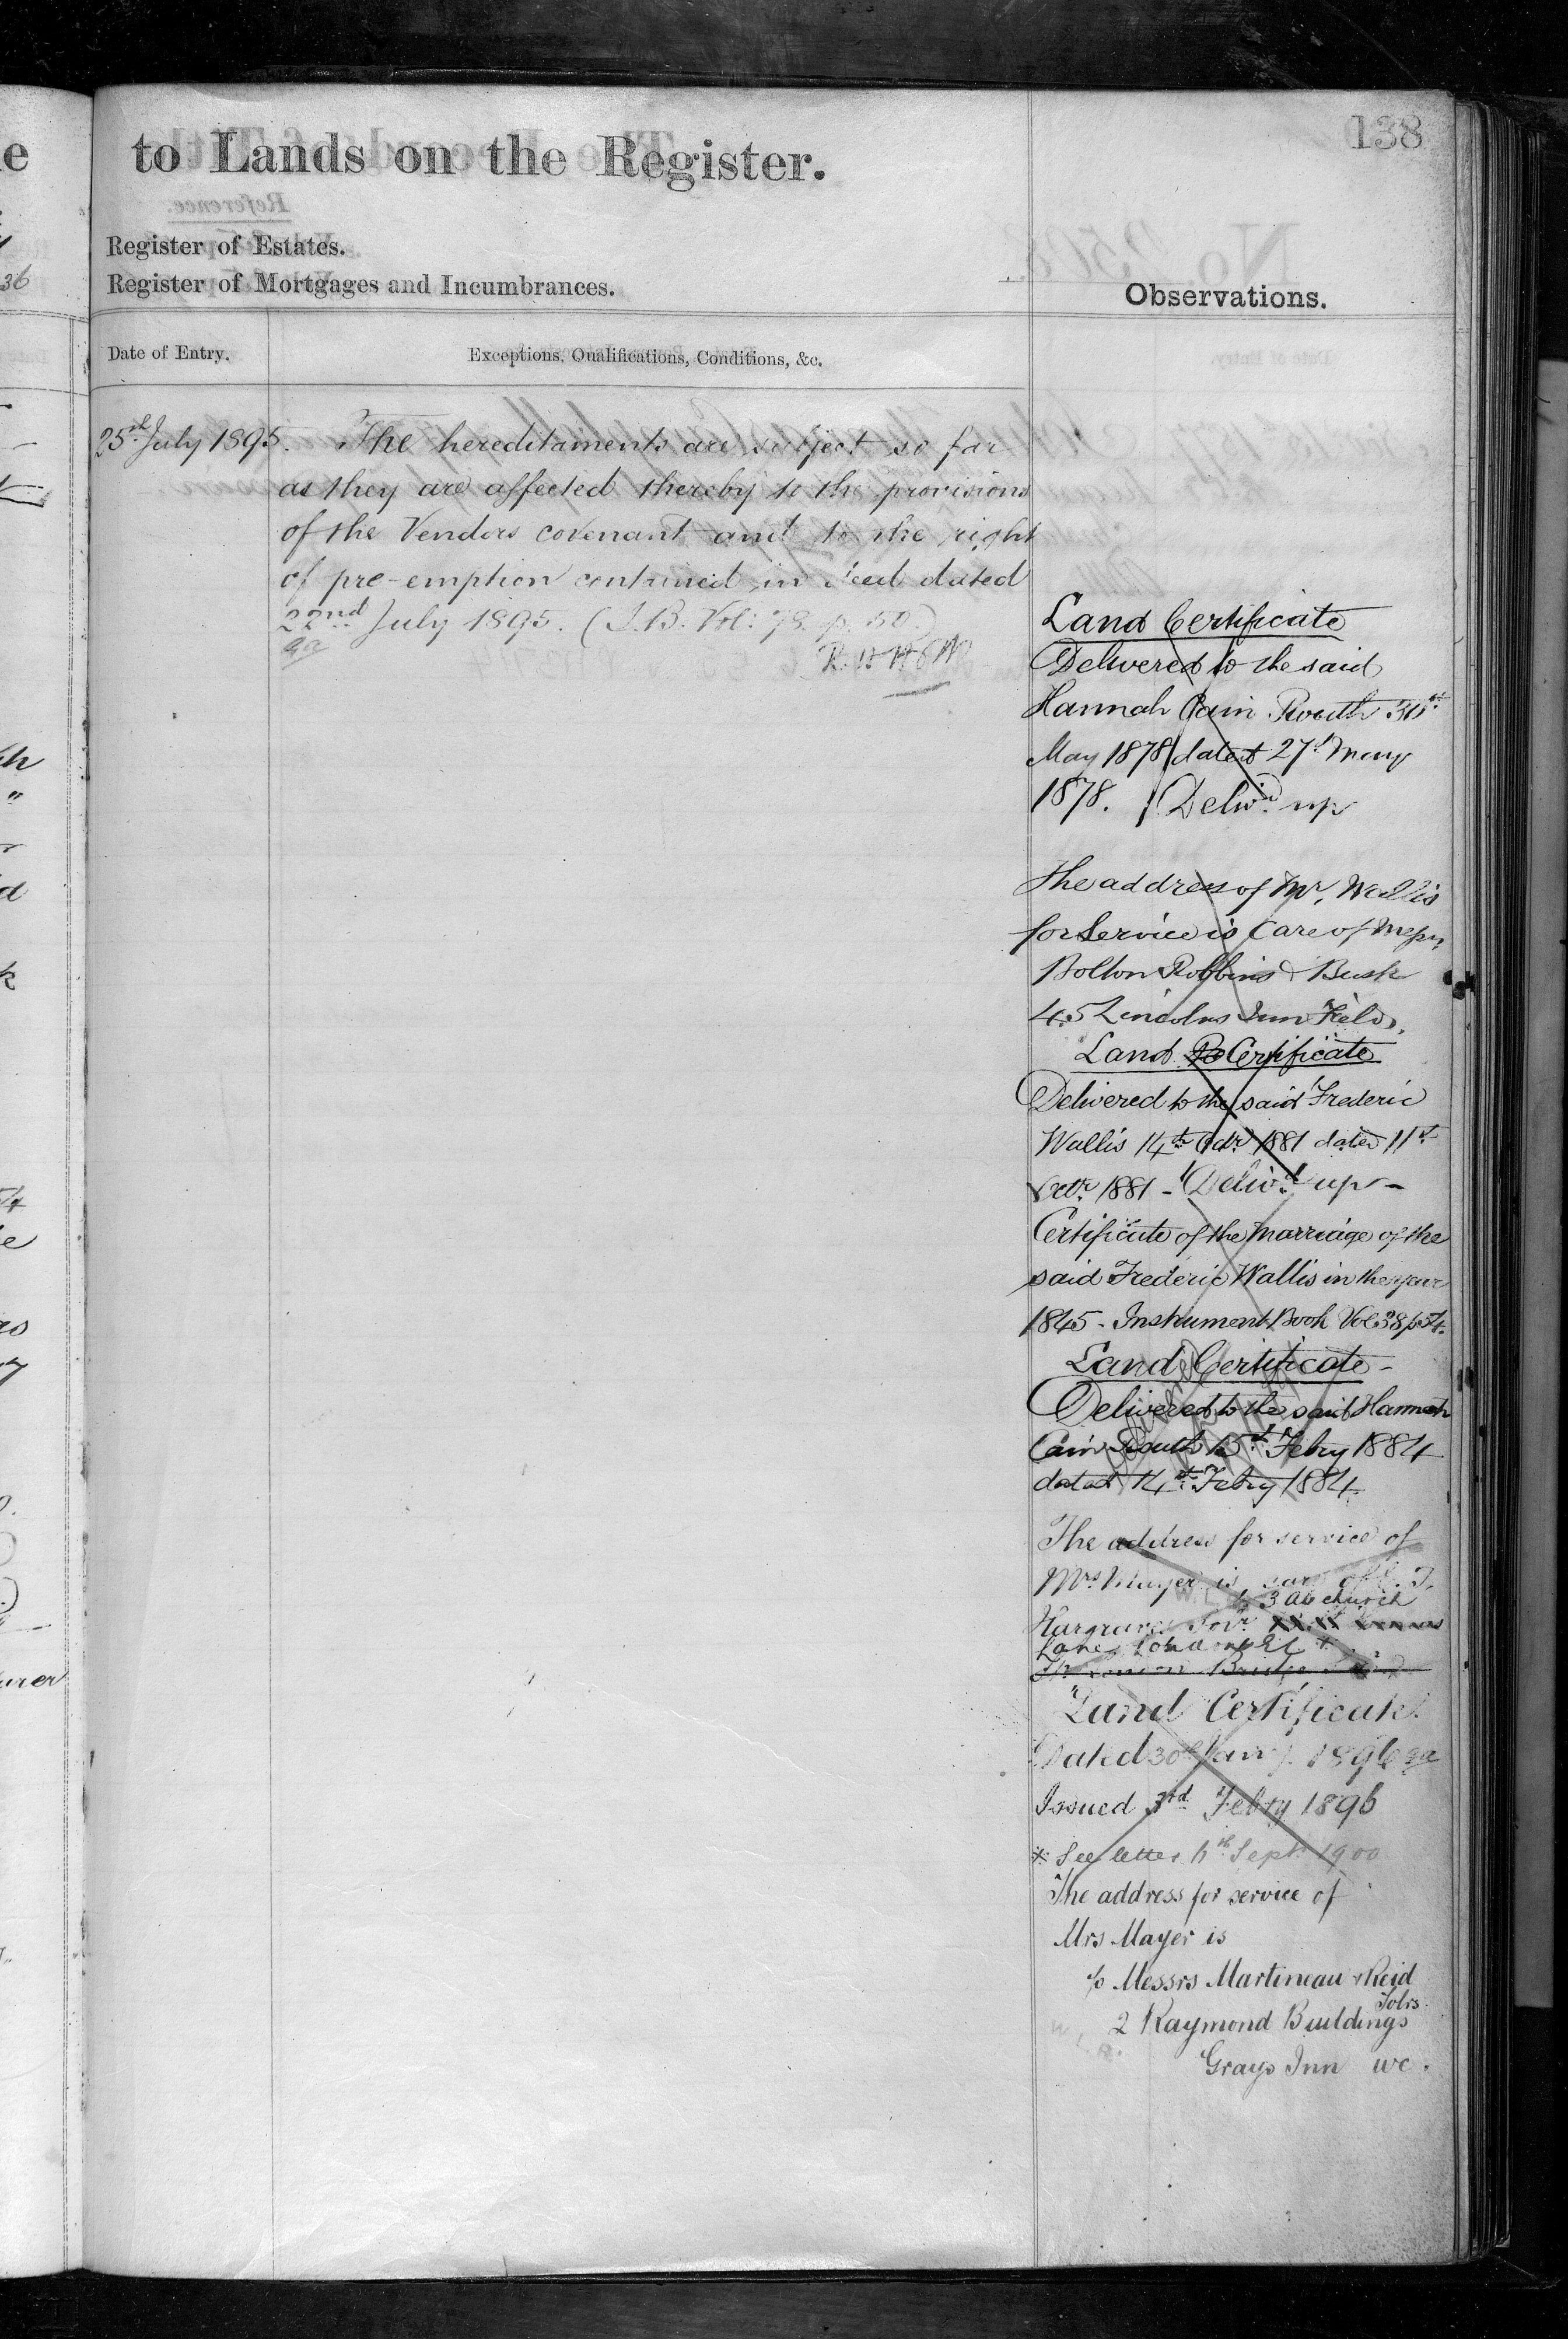 138
to Lands on the Register.
Register of Estates.
Register of Mortgages and Incumbrances.
Observations.
Date of Entry.
Exceptions, Qualifications, Conditions, &c.
25th July 1895.
The hereditaments are subject so far
as they are affected thereby to the provisions
of the Vendors covenant and to the right
of pre-emption contained in deed dated
22nd July 1895. (I.B. Vol: 78. p. 50.)
Land Certificate
Delivered to the said
Hannah Cain Routh 30th
May 1878 dated 27th May
1878. Delivd up
The address of Mr. Wallis
for Service is Care of Messrs
Bolton Robbins & Busk
45 Lincolns Inn Fields.
Land Certificate
Delivered to the said Frederic
Wallis 14th Octr 1881 dated 11th
Octr 1881 - Delivd up -
Certificate of the marriage of the
said Frederic Wallis in the year
1845 - Instrument Book Vol 38 p 54.
Land Certificate -
Delivered to the said Hannah
Cain Routh 15th Febry 1884
dated 14th Febry 1884.
The address for service of
Mrs Mayer is care of
3 Abchurch
Hargraves Solr
Lane London EC *
London Bridge
Land Certificate
Dated 30th Jany 1896
Issued 3rd Febry 1896
* See letter 6th Sept 1900
The address for service of
Mrs Mayer is
c/o Messrs Martineau & Reid
Solrs
2 Raymond Buildings
Grays Inn WC.